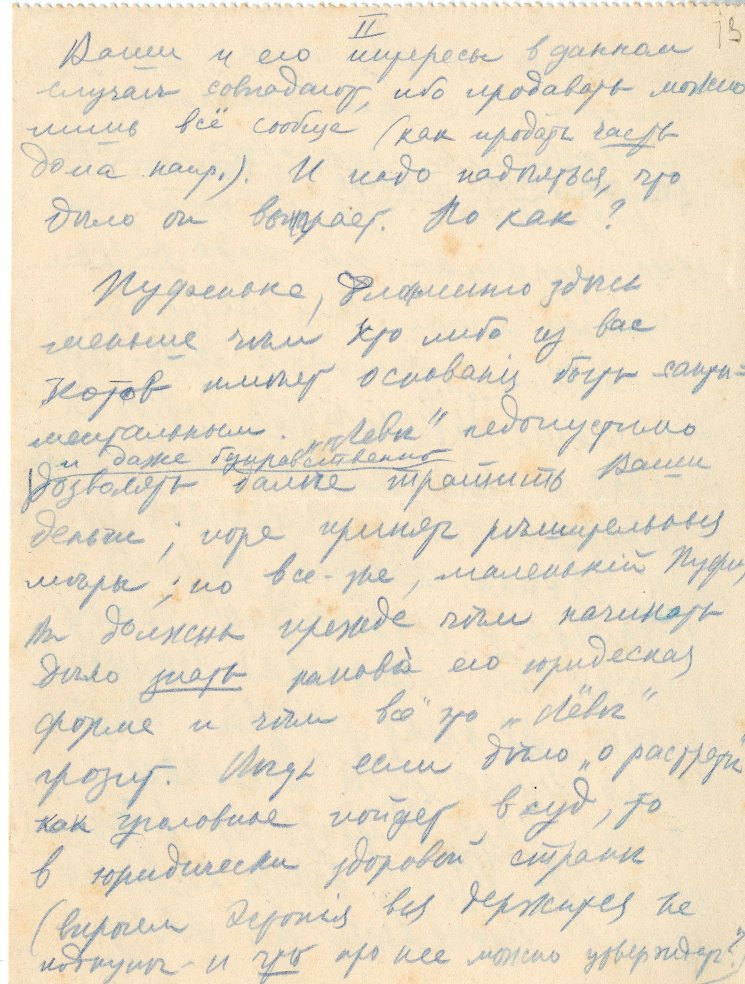 II
13
Ваши и его интересы в данном
случаѣ совпадают, ибо продавать можно
лишь всё сообща (как продать часть
дома напр.). И надо надѣяться, что
дѣло он выиграет. Но как?
Пуфенька, здѣсь
меньше чѣм кто либо из вас
Котов имѣет основаній быть санти=
ментальным. „Лёвѣ" недопустимо
и даже безнравственно
позволять далѣе тратить Ваши
деньги; пора принять рѣшительныя
мѣры; но все-же, маленькій Пуфи,
Вы должны прежде чѣм начинать
дѣло знать какова его юридеская
форма и чѣм всё это „Лёвѣ"
грозит. Вѣдь если дѣло „о растратѣ"
как уголовное пойдет в суд, то
в юридически здоровой странѣ
(впрочем Эстонія вся держится на
и что про нее можно утверждать?)